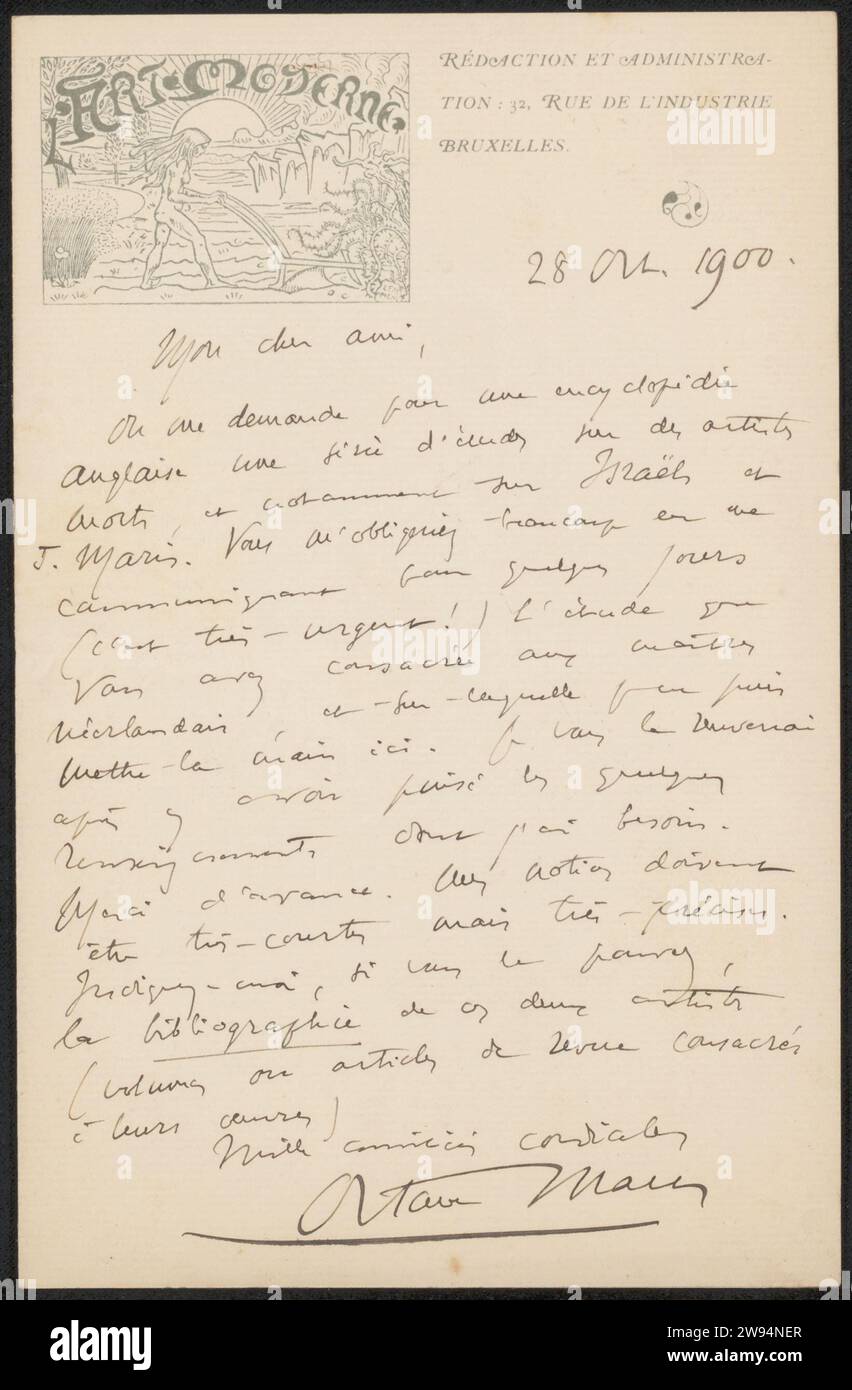 L'ART MODERNE
RÉDACTION ET ADMINISTRA-
TION : 32, RUE DE L'INDUSTRIE
BRUXELLES.
28 Oct. 1900.
Mon cher ami,
On me demande pour une encyclopédie
anglaise une série d'études sur des artistes
morts, et notamment sur Israëls et
J. Maris. Vous m'obligeriez beaucoup en me
communiquant pour quelques jours
(c'est très-urgent!) l'étude que
vous avez consacrée aux maîtres
néerlandais, et sur laquelle je ne puis
mettre la main ici. Je vous la renverrai
après y avoir puisé les quelques
renseignements dont j'ai besoin.
Merci d'avance. Mes notices doivent
être très-courtes mais très-précises.
Indiquez-moi, si vous le pouvez,
la bibliographie de ces deux artistes
(volumes ou articles de revue consacrés
à leurs œuvres)
Mille amitiés cordiales
Octave Maus
alamy
Image ID: 2W94NER
www.alamy.com